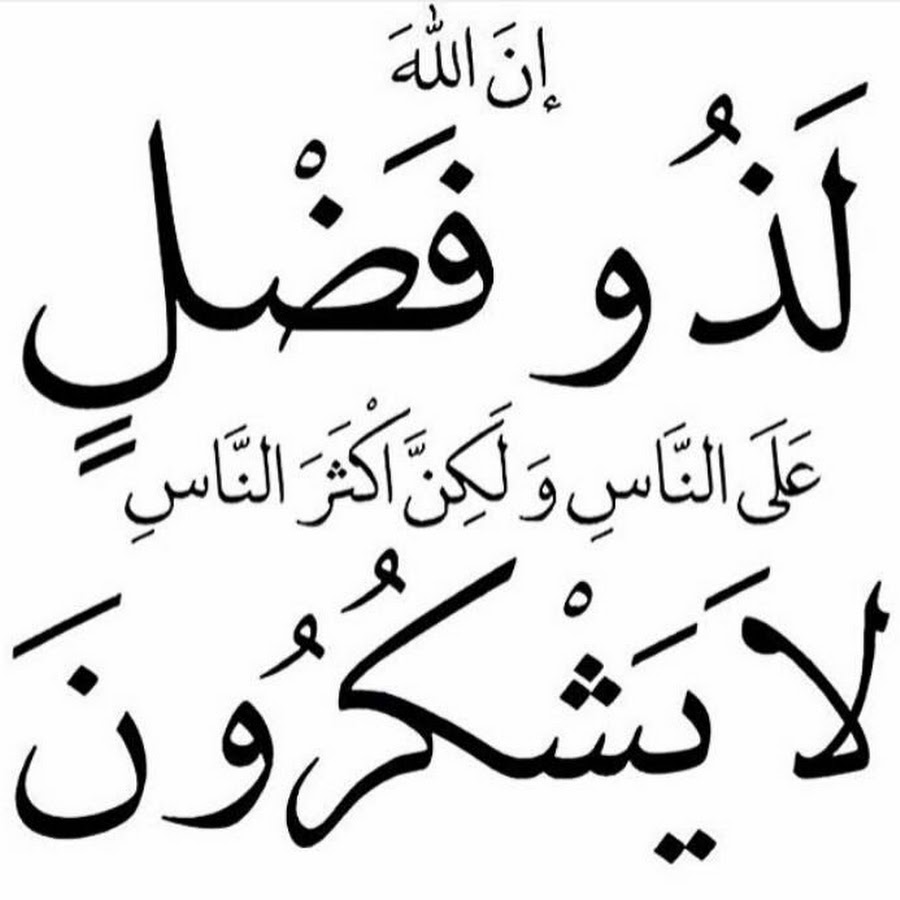 إنَ اللّٰهَ
لَذُو فَضْلٍ
عَلَى النَّاسِ وَ لَكِنَّ اَكْثَرَ النَّاسِ
لَا يَشْكُرُونَ